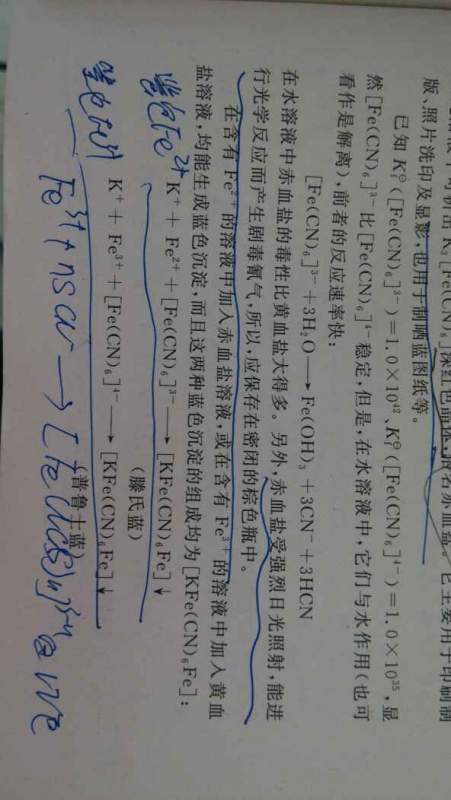 版、照片洗印及显影,也用于制晒蓝图纸等。
已知 K_f^⊖([Fe(CN)₆]³⁻)=1.0×10⁴²、K_f^⊖([Fe(CN)₆]⁴⁻)=1.0×10³⁵,显
然[Fe(CN)₆]³⁻比[Fe(CN)₆]⁴⁻稳定,但是,在水溶液中,它们与水作用(也可
看作是解离),前者的反应速率快:
[Fe(CN)₆]³⁻+3H₂O→Fe(OH)₃+3CN⁻+3HCN
在水溶液中赤血盐的毒性比黄血盐大得多。另外,赤血盐受强烈日光照射,能进
行光学反应而产生剧毒氰气,所以,应保存在密闭的棕色瓶中。
在含有Fe²⁺的溶液中加入赤血盐溶液,或在含有Fe³⁺的溶液中加入黄血
盐溶液,均能生成蓝色沉淀,而且这两种蓝色沉淀的组成均为[KFe(CN)₆Fe]:
鉴定Fe²⁺ K⁺+Fe²⁺+[Fe(CN)₆]³⁻→[KFe(CN)₆Fe]↓
(滕氏蓝)
鉴定Fe³⁺ K⁺+Fe³⁺+[Fe(CN)₆]⁴⁻→[KFe(CN)₆Fe]↓
(普鲁士蓝)
Fe³⁺+nSCN⁻→[Fe(NCS)n]³⁻ⁿ